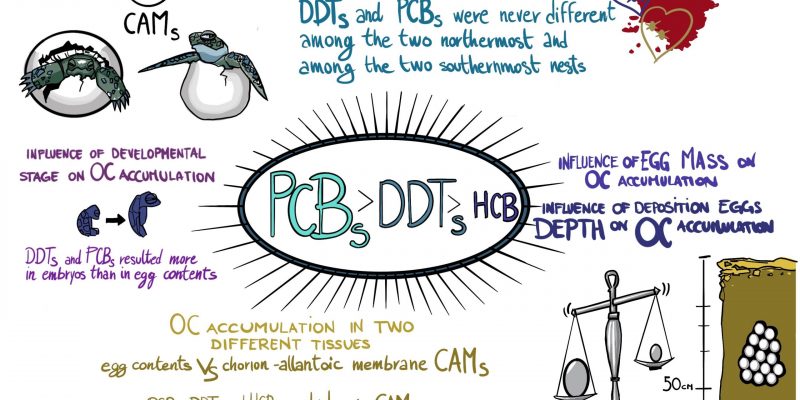 CAMs
DDTs and PCBs were never different
among the two northermost and
among the two southernmost nests
INFLUENCE OF DEVELOPMENTAL
STAGE ON OC ACCUMULATION
DDTs and PCBs resulted more
in embryos than in egg contents
PCBs > DDTs > HCB
INFLUENCE OF EGG MASS ON
OC ACCUMULATION
INFLUENCE OF DEPOSITION EGGS
DEPTH ON OC ACCUMULATION
OC ACCUMULATION IN TWO
DIFFERENT TISSUES
egg contents VS chorion-allantoic membrane CAMs
50CM